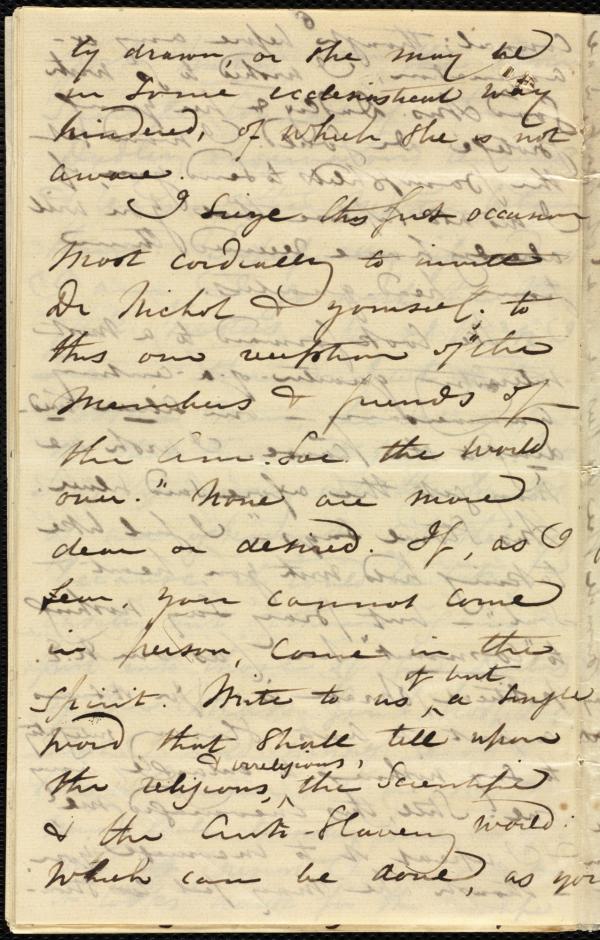 ty drawn, or she may be
in some ecclesiastical way
hindered, of which she is not
aware.
I seize this first occasion
most cordially to invite
Dr Nichol & yourself, to
this our reception of "the
members & friends of
the Am. Soc. the world
over." None are more
dear or desired. If, as I
fear, you cannot come
in person, come in the
spirit. Write to us, if but a single
word that shall tell upon
the religious, & irreligious, the Scientific
& the Anti-Slavery world:
which can be done, as you